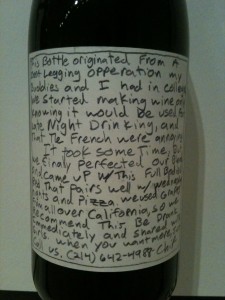 This Bottle originated From A
Boot Legging opperation my
Buddies and I had in college
We started making wine only
knowing it would be used for
Late Night Drinking, and
That The French were annoying
It took some Time, But
we Finaly Perfected our
and came uP w/This Full Bodied
Red That Pairs well w/
and Pizza. we used
From all over California, so we
recommend This Be Drank
immediately and shared w/
Girls. when you want more
Call us. (214) 642-4988